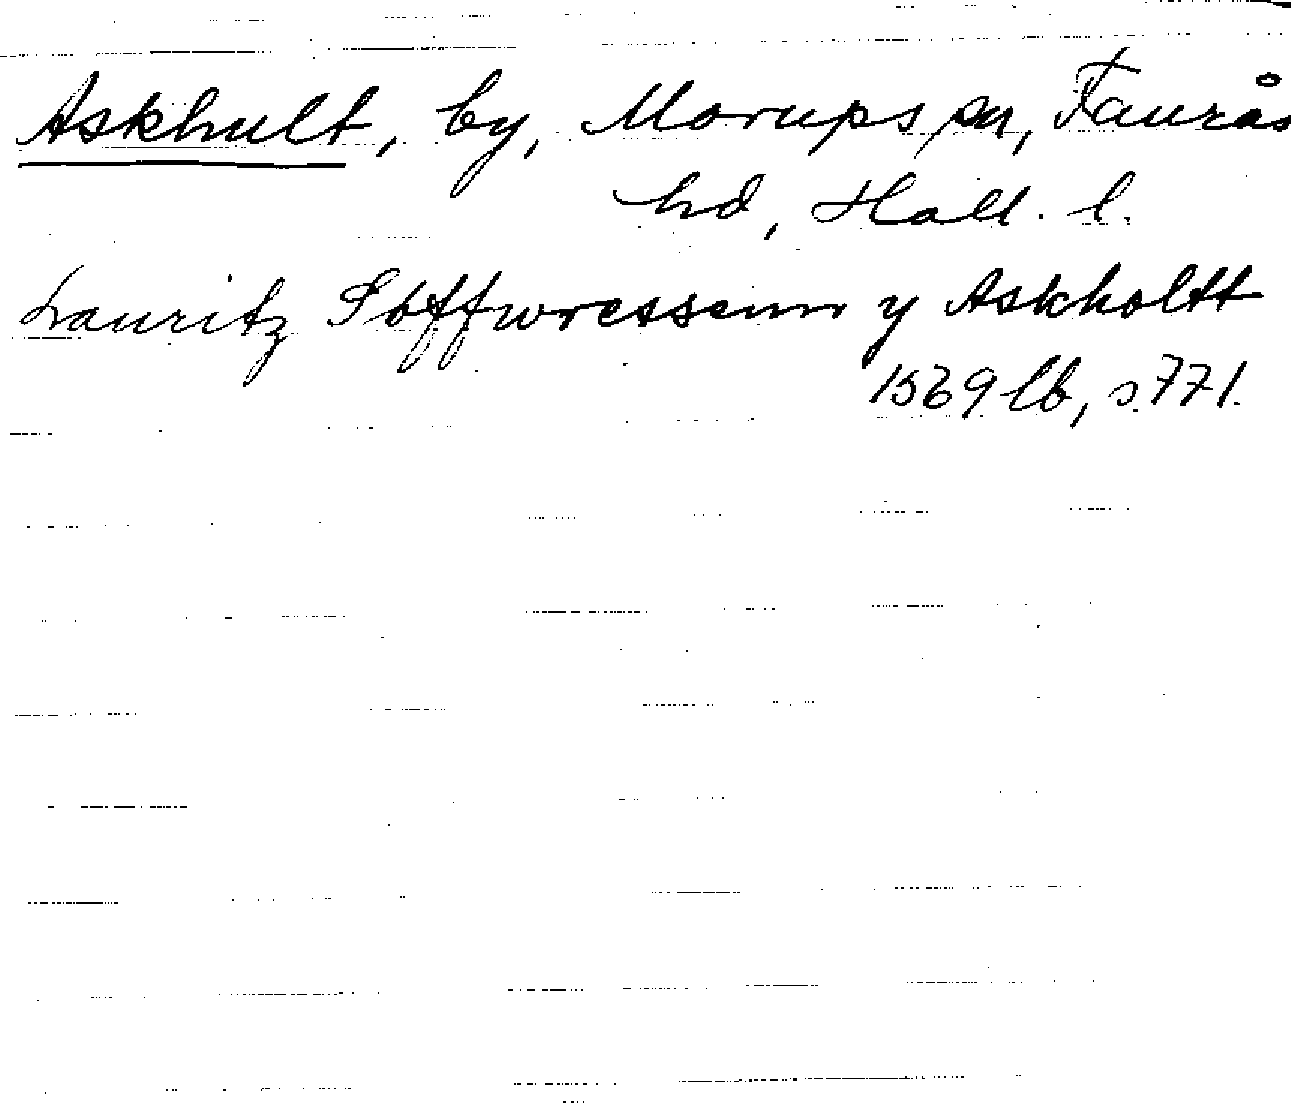 Askhult, by, Morups sn, Faurås
hd, Hall. l.
Lauritz Söffwressenn y Askholtt
1569 lb, s. 771.